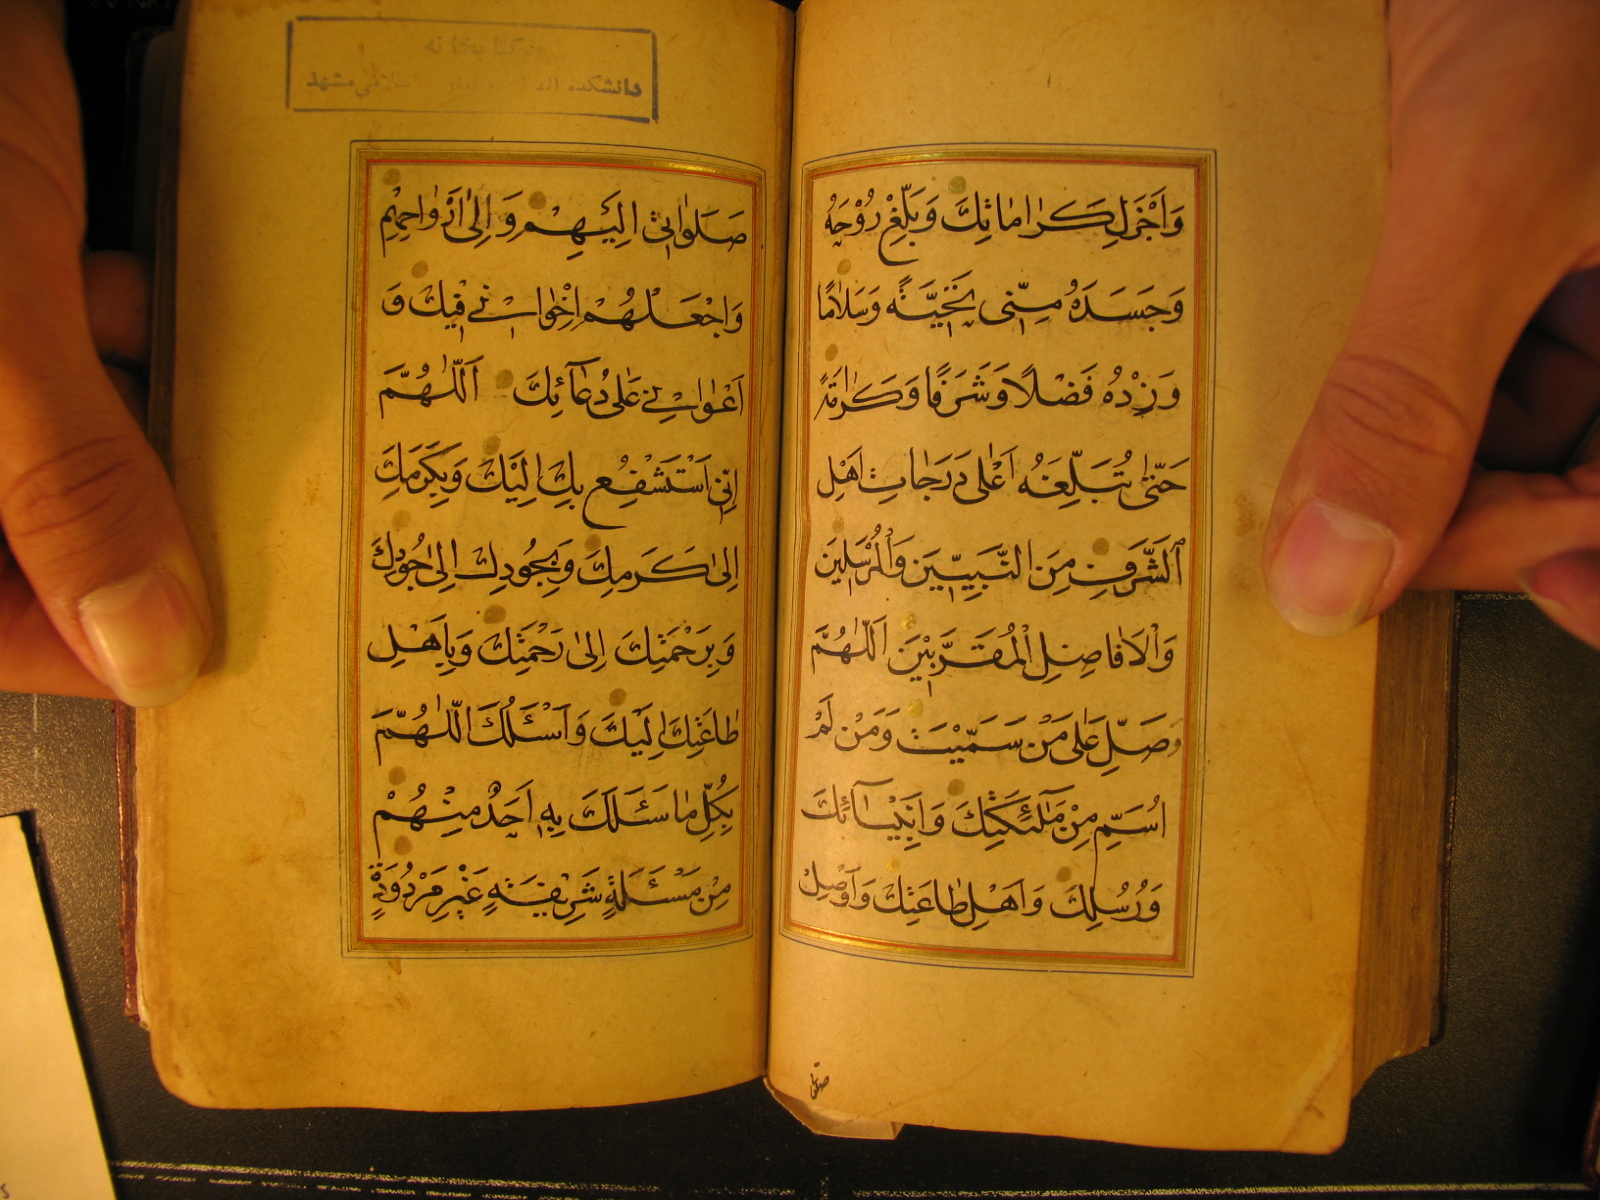 وَاَجْزَلِ كَرٰامٰاتِكَ وَبَلِّغْ رُوْحَهُ
وَجَسَدَهُ مِنّى تَحِيَّةً وَسَلٰامًا
وَزِدْهُ فَضْلًا وَشَرَفًا وَكَرٰامَةً
حَتّٰى تُبَلِّغَهُ اَعْلٰى دَرَجٰاتِ اَهْلِ
الشَّرَفِ مِنَ النَّبِيّينَ وَالْمُرْسَلينَ
وَالْاَفٰاضِلِ الْمُقَرَّبينَ اَللّٰهُمَّ
وَصَلِّ عَلٰى مَنْ سَمَّيْتُ وَمَنْ لَمْ
اُسَمِّ مِنْ مَلٰٓئِكَتِكَ وَاَنْبِيٰٓائِكَ
وَرُسُلِكَ وَاَهْلِ طٰاعَتِكَ وَاَوْصِلْ
صلواتى
كتابخانه
دانشكده ... اسلامي مشهد
صَلَوٰاتى اِلَيْهِمْ وَاِلٰى اَرْوٰاحِهِمْ
وَاجْعَلْهُمْ اِخْوٰانى فيكَ وَ
اَعْوٰانى عَلٰى دُعٰٓائِكَ اَللّٰهُمَّ
اِنّى اَسْتَشْفِعُ بِكَ اِلَيْكَ وَبِكَرَمِكَ
اِلٰى كَرَمِكَ وَبِجُودِكَ اِلٰى جُودِكَ
وَبِرَحْمَتِكَ اِلٰى رَحْمَتِكَ وَبِاَهْلِ
طٰاعَتِكَ اِلَيْكَ وَاَسْئَلُكَ اللّٰهُمَّ
بِكُلِّ مٰا سَئَلَكَ بِهِ اَحَدٌ مِنْهُمْ
مِنْ مَسْئَلَةٍ شَريفَةٍ غَيْرِ مَرْدُودَةٍ